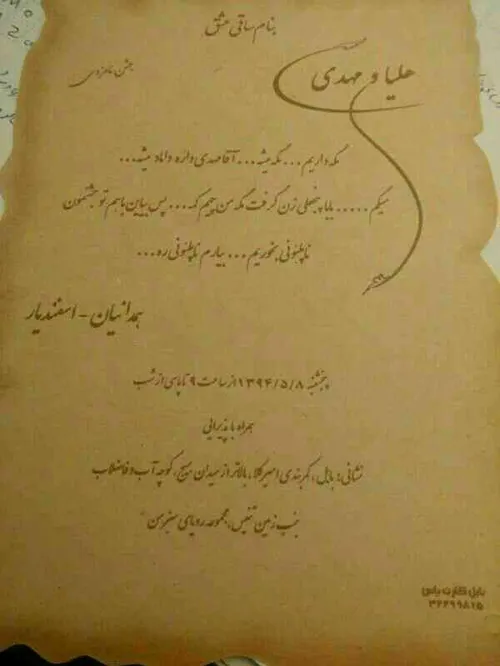 بنام ساقی عشق
هلیا و مهدی
جشن نامزدی
مگه داریم ... مگه میشه ... آقا مهدی داره داماد میشه ...
میگم ..... بابا پنجعلی زن گرفت مگه من چیم که ... پس بیاین باهم تو جشنمون
ناپلئونی بخوریم ... بیارم ناپلئونی ره ...
همدانیان - اسفندیار
پنجشنبه ۱۳۹۴/۵/۸ از ساعت ۹ تا پاسی از شب
همراه با پذیرایی
نشانی: بابل، کمربندی امیرکلا، بالاتر از میدان بسیج، کوچه آب و فاضلاب
جنب زمین تنیس، مجموعه رویای سبز من
بابل کارت یاس
۳۲۲۹۹۸۲۵